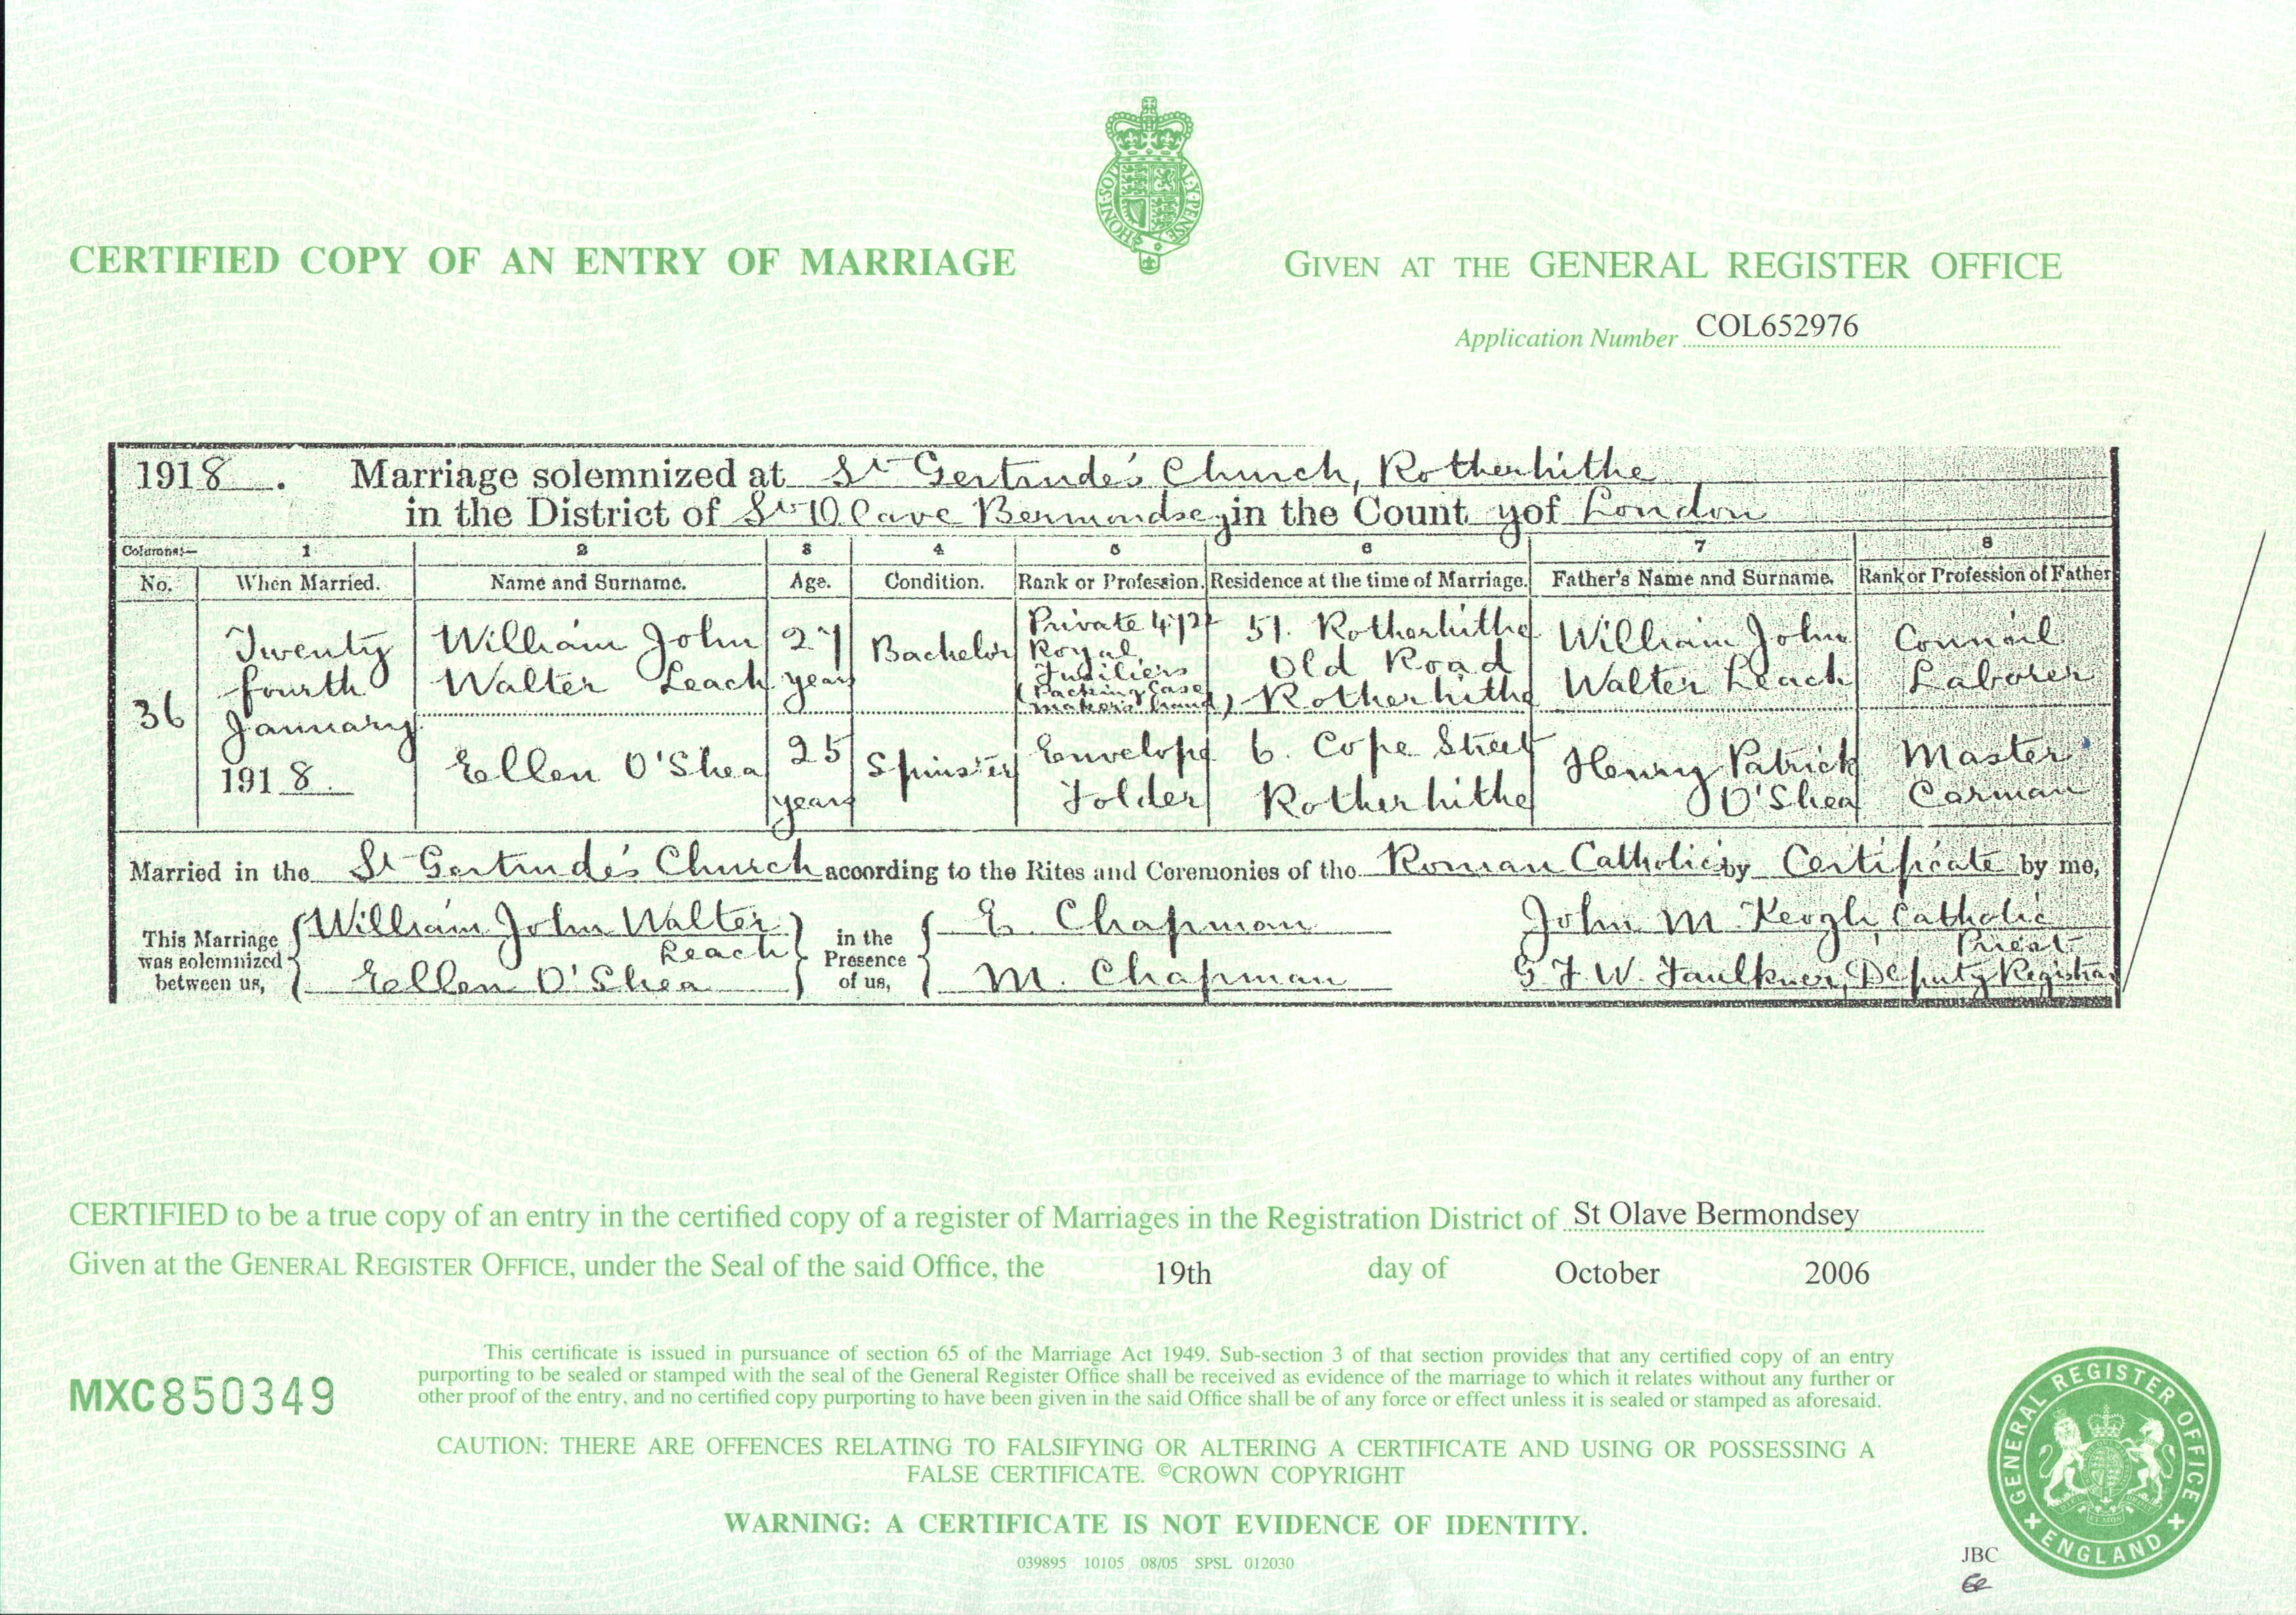 HONI·SOIT Y·PENSE
CERTIFIED COPY OF AN ENTRY OF MARRIAGE
GIVEN AT THE GENERAL REGISTER OFFICE
Application Number COL652976
1918. Marriage solemnized at St Gertrude's Church, Rotherhithe
in the District of St Olave Bermondsey in the Count yof London
Columns:— 1 2 3 4 5 6 7 8
No. When Married. Name and Surname. Age. Condition. Rank or Profession. Residence at the time of Marriage. Father's Name and Surname. Rank or Profession of Father
36
Twenty
fourth
January
1918.
William John
Walter Leach
27
years
Bachelor
Private
Royal
Fusiliers
(Packing Case
makers hand)
51. Rotherhithe
Old Road
Rotherhithe
William John
Walter Leach
Council
Laborer
Ellen O'Shea
25
years
Spinster
Envelope
Folder
6. Cope Street
Rotherhithe
Henry Patrick
O'Shea
Master
Carman
Married in the St Gertrude's Church according to the Rites and Ceremonies of the Roman Catholic by Certificate by me,
This Marriage was solemnized between us,
William John Walter
Leach
Ellen O'Shea
in the Presence of us,
E. Chapman
M. Chapman
John M. Keogh, Catholic
Priest
G F W. Faulkner, Deputy Registrar
CERTIFIED to be a true copy of an entry in the certified copy of a register of Marriages in the Registration District of St Olave Bermondsey
Given at the GENERAL REGISTER OFFICE, under the Seal of the said Office, the 19th day of October 2006
MXC850349
This certificate is issued in pursuance of section 65 of the Marriage Act 1949. Sub-section 3 of that section provides that any certified copy of an entry
purporting to be sealed or stamped with the seal of the General Register Office shall be received as evidence of the marriage to which it relates without any further or
other proof of the entry, and no certified copy purporting to have been given in the said Office shall be of any force or effect unless it is sealed or stamped as aforesaid.
CAUTION: THERE ARE OFFENCES RELATING TO FALSIFYING OR ALTERING A CERTIFICATE AND USING OR POSSESSING A
FALSE CERTIFICATE. ©CROWN COPYRIGHT
WARNING: A CERTIFICATE IS NOT EVIDENCE OF IDENTITY.
039895 10105 08/05 SPSL 012030
GENERAL REGISTER OFFICE
ENGLAND
JBC